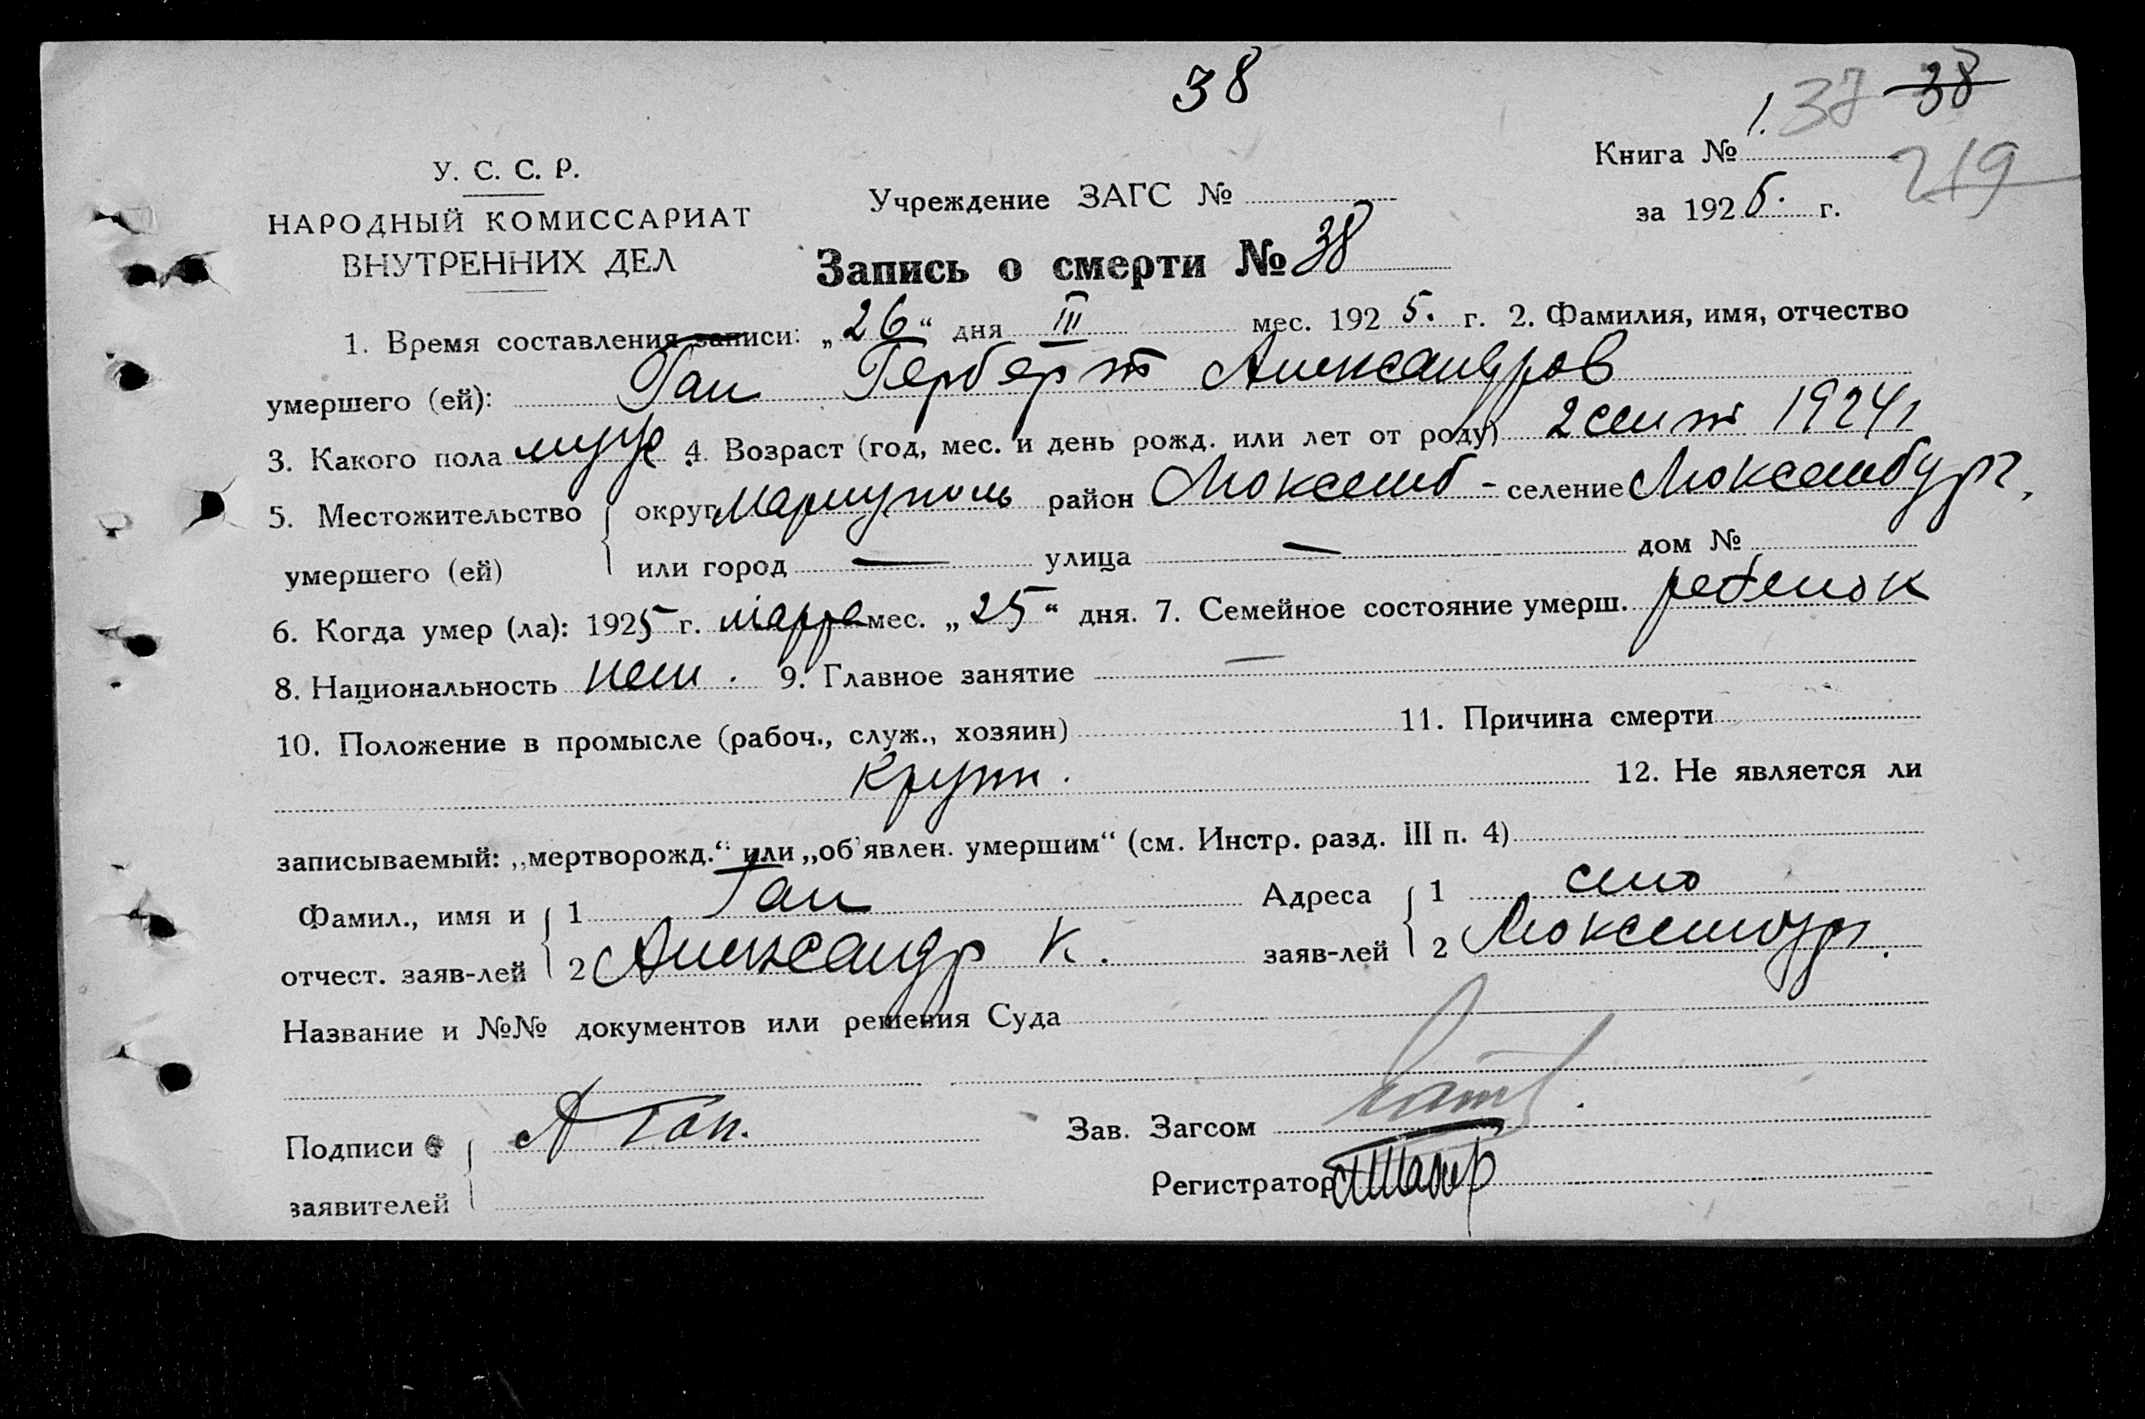 38
1. 37 38
Книга №
219
У. С. С. Р.
Учреждение ЗАГС №
за 1925. г.
НАРОДНЫЙ КОМИССАРИАТ
ВНУТРЕННИХ ДЕЛ
Запись о смерти № 38
1. Время составления записи: „26“ дня III мес. 1925. г. 2. Фамилия, имя, отчество
умершего (ей): Ган Герберт Александров
3. Какого пола муж 4. Возраст (год, мес. и день рожд. или лет от роду) 2 сент 1924 г
5. Местожительство округ Мариуполь район Люксемб- селение Люксембург,
умершего (ей) или город — улица — дом №
6. Когда умер (ла): 1925 г. марта мес. „25“ дня. 7. Семейное состояние умерш. ребенок
8. Национальность нем. 9. Главное занятие —
10. Положение в промысле (рабоч., служ., хозяин) 11. Причина смерти
круп. 12. Не является ли
записываемый: „мертворожд.“ или „об'явлен. умершим“ (см. Инстр. разд. III п. 4)
Фамил., имя и 1 Ган Адреса 1 село
отчест. заяв-лей 2 Александр К. заяв-лей 2 Люксембург.
Название и №№ документов или решения Суда
Подписи А Ган. Зав. Загсом
заявителей Регистратор